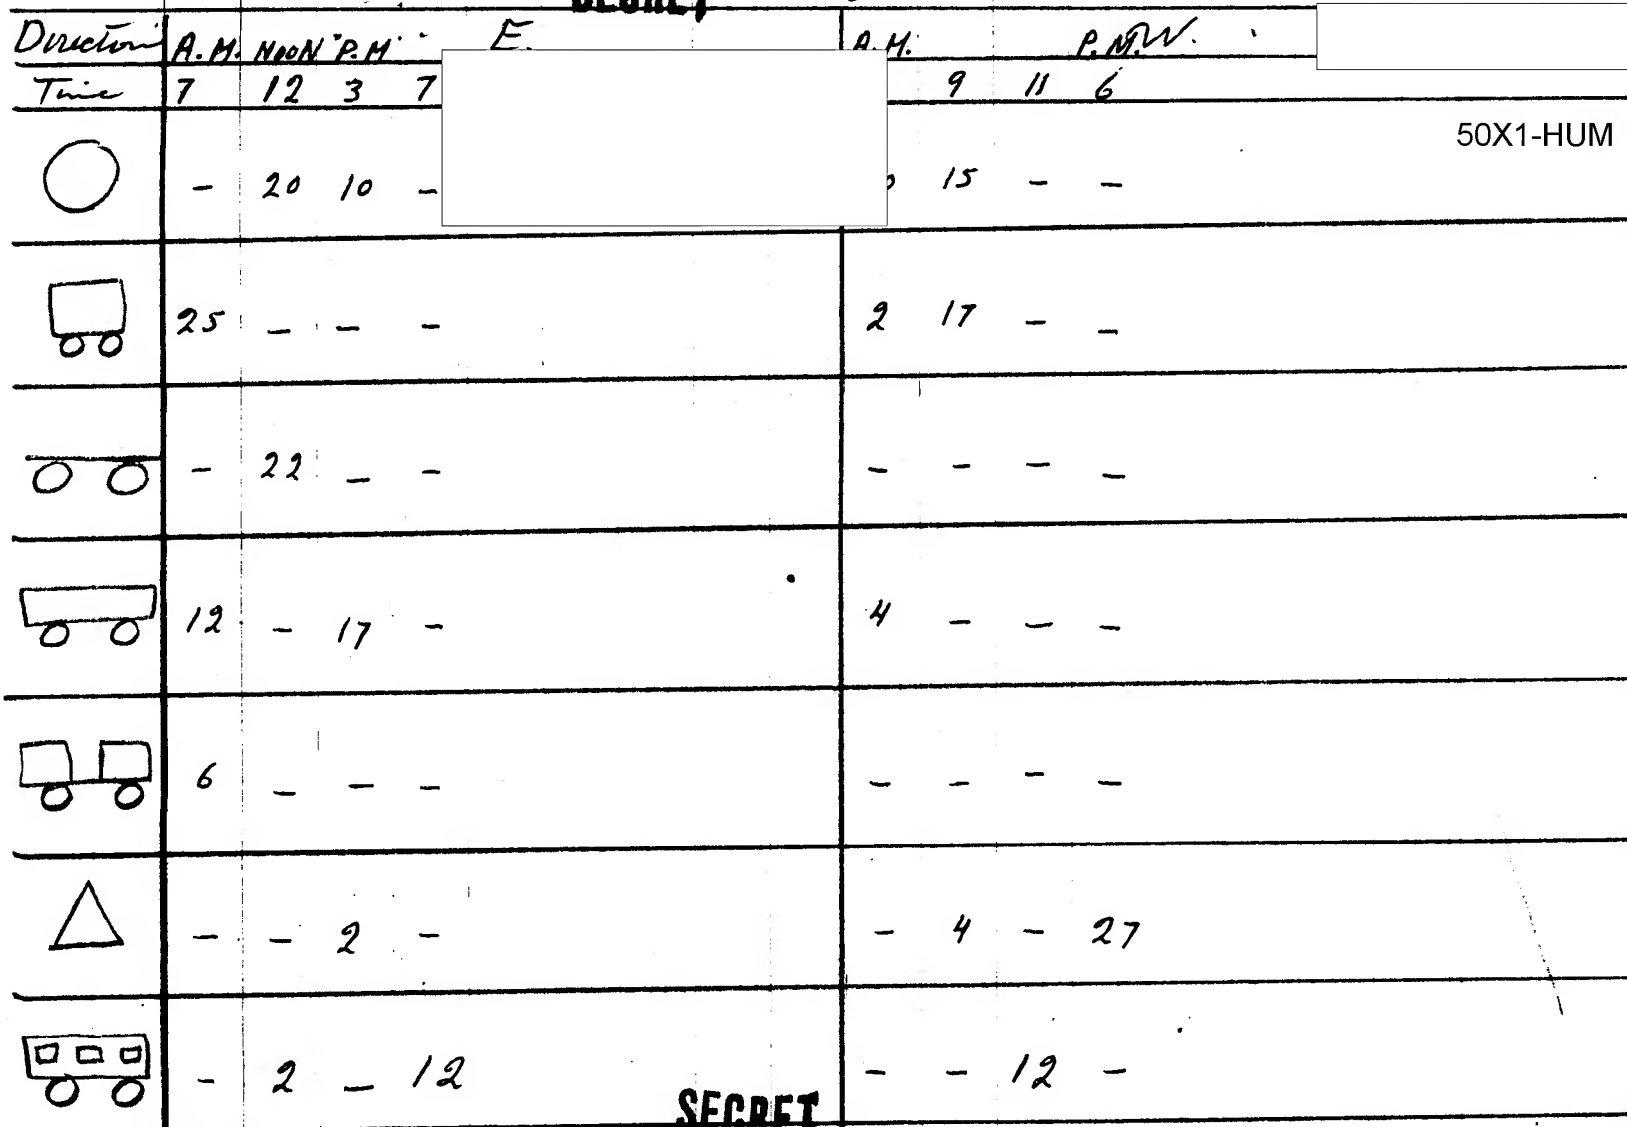 SECRET
Direction A.M. NOON P.M. E. A.M. P.M. W.
Time 7 12 3 7 9 11 6
50X1-HUM
- 20 10 - 15 - -
25 - - - 2 17 - -
- 22 - - - - - -
12 - 17 - 4 - - -
6 - - - - - - -
- - 2 - - 4 - 27
- 2 - 12 - - 12 -
SECRET